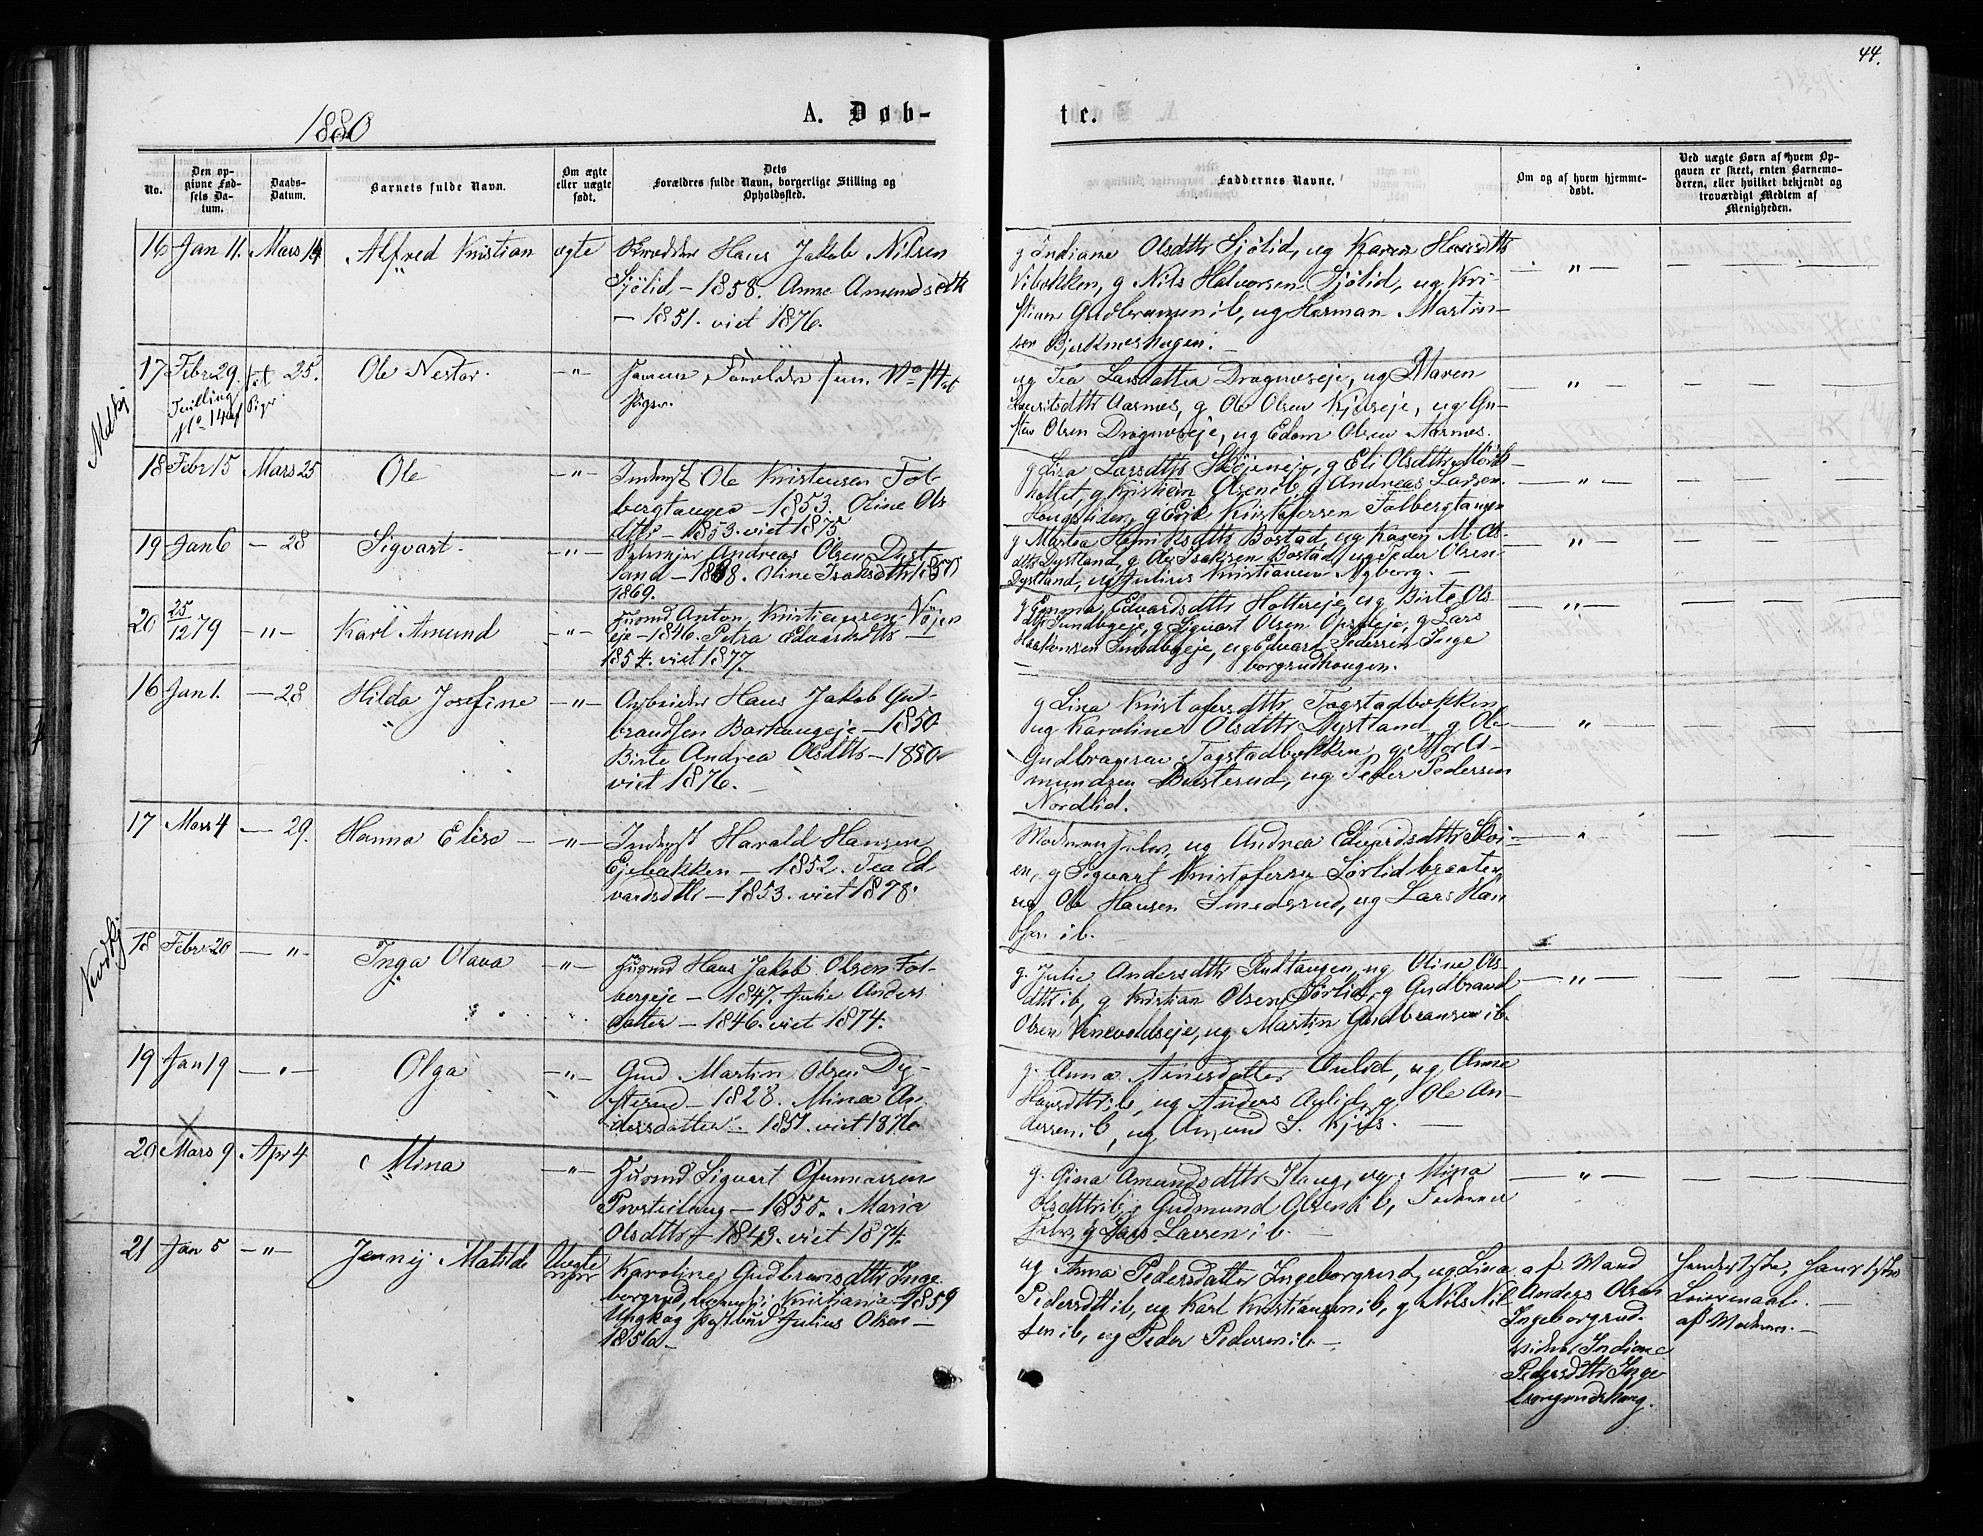 44.
1880
A. Døb-
te.
No.
Den op-
givne Fød-
sels Da-
tum.
Daabs-
Datum.
Barnets fulde Navn.
Om ægte
eller uægte
født.
Dets
Forældres fulde Navn, borgerlige Stilling og
Opholdssted.
Faddernes Navne.
Om og af hvem hjemme-
døbt.
Ved uægte Børn af hvem Op-
gaven er skeet, enten Barnemo-
deren, eller hvilket bekjendt og
troværdigt Medlem af
Menigheden.
16 Jan 11. Mars 14 Alfred Kristian ægte
Hans Jakob Nilsen
Sjölid - 1858. Anne Amundsdth
- 1851. viet 1876.
g Indiane Olsdttr Sjölid, ug Karen Hansdttr
Vibakken, g Nils Halvorsen Sjölid, ug Kri-
stian Gudbransen ib, ug Herman Martin-
sen
17 Febr 29. 25. Ole Nestor. -"-
Tvilling
No 14 af Piger.
Forældre No 14 af
Piger.
ug Tea Larsdatter ug Maren
Aarnes, g Ole Olsen ug Gu-
stav Olsen ug Edom Olsen Aarnes.
18 Febr 15 Mars 25 Ole -"-
Inderst Ole Kristensen Fol-
bergtangen - 1853. Oline Ols
dttr - 1853. viet 1875
g Lisa Larsdttr g Eli Olsdttr
g Kristian Olsen ib, g Andreas Larsen
Haugslien, g Kristofersen Folbergtangen
19 Jan 6 - 28 Sigvart. -"-
Andreas Olsen Dyst
land - 1848. Oline Isaksdttr 1850
1869.
g Martea Bostad, ug Karen M. Ols-
dttr Dystland, g Ole Isaksen Bostad, ug Peder Olsen
Dystland, ug Julius Kristiansen Nyborg. -
20 25/12 79 -"- Karl Amund -"-
Husmd Anton Kristiansen Nöjen
eje - 1846. Petra Edvardsdttr -
1854. viet 1877.
g Emma Edvardsdttr Holtereje, ug Birte Ols
dttr Sundbyeje, g Sigvart Olsen Opsaleje, g Lars
Haakonsen Sundbyeje, ug Edvart Pedersen Inge
borgrudhaugen.
Nordkj.
16 Jan 1. - 28 Hilda Josefine -"-
Arbeider Hans Jakob Gud-
brandsen Borhaugeje - 1850
Birte Andrea Olsdttr - 1850
viet 1876. -
g Lina Kristofersdttr Tagstadbakken
ug Karoline Olsdttr Dystland, g Ole
Gudbransen Tagstadbakken, g
mundsen Busterud, ug Peder Pedersen
Nordlid.
17 Mars 4 - 29. Hanna Elise - -"-
Inderst Harald Hansen
Ejebakken - 1852. Tea Ed-
vardsdttr - 1853. viet 1878.
Moderen selv, ug Andrea Edvardsdttr
en, g Sigvart Kristofersen Sörlidbraaten,
ug Ole Hansen Smedsrud, ug Lars Han
sen ib.
18 Febr 20 - " Inga Olava -"-
Husmd Hans Jakob Olsen Fol-
bergeje - 1847. Julie Anders
datter - 1846. viet 1874.
g. Julie Andersdttr Rudtangen, ug Oline Ols-
dttr ib, g Kristian Olsen Sörlid, g Gudbrand
Olsen Venevoldseje, ug Martin Gudbransen ib.
19 Jan 19 - " - Olga -"-
Gmd Martin Olsen Dy-
sterud - 1828. Mina An-
dersdatter - 1851. viet 1876
g. Anna Arnesdatter Aulid, ug Anne
Hansdttr ib, ug Anders Aulid, g Ole An-
dersen ib, ug Amund S. Kjös. -
20 Mars 9 Apr 4 Mina -"-
Husmd Sigvart Gunnarsen
Prestehaug - 1850. Maria
Olsdttr - 1843. viet 1874.
g. Gina Amundsdttr Haug, ug Mina
Olsdttr ib, Gudmund Olsen ib, Faderen
selv, g Lars Larsen ib. -
21 Jan 5 -"- Jenny Matilde Uægte
Karoline Gudbransdttr Inge
borgrud, Kristiania - 1859
Ungk og Postbud Julius Olsen -
1856 -
ug. Anna Pedersdatter Ingeborgrud, ug Lina
Pedersdtt ib, ug Karl Kristiansen ib, g Nils Nil-
sen ib, ug Peder Pedersen ib -
af Mand
Anders Olsen
Ingeborgrud
Indiane
Pedersdttr Inge
borgrudshaug.
Hendes 1ste, hans 1ste
Leiermaal. -
af Moderen. -